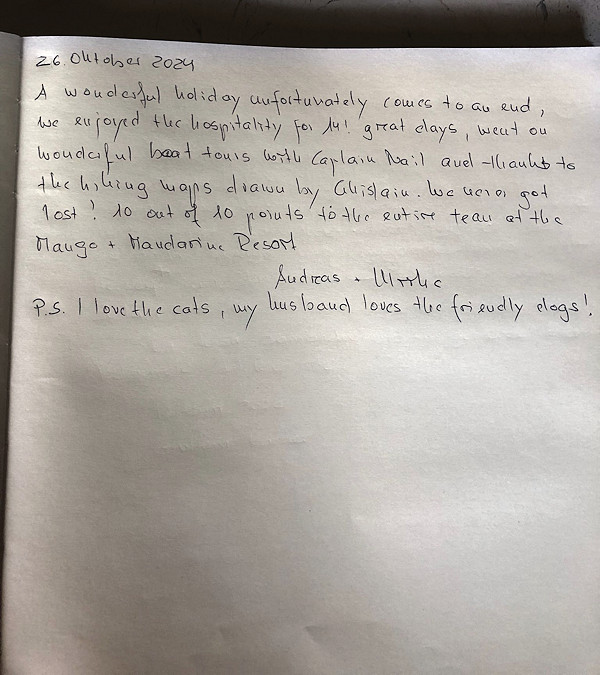 26. Oktober 2024
A wonderful holiday unfortunately comes to an end,
we enjoyed the hospitality for 14! great days, went on
wonderful boat tours with Captain Nail and thanks to
the hiking maps drawn by Ghislain. We never got
lost! 10 out of 10 points to the entire team at the
Mango + Mandarine Resort
Andreas +
P.S. I love the cats, my husband loves the friendly dogs!